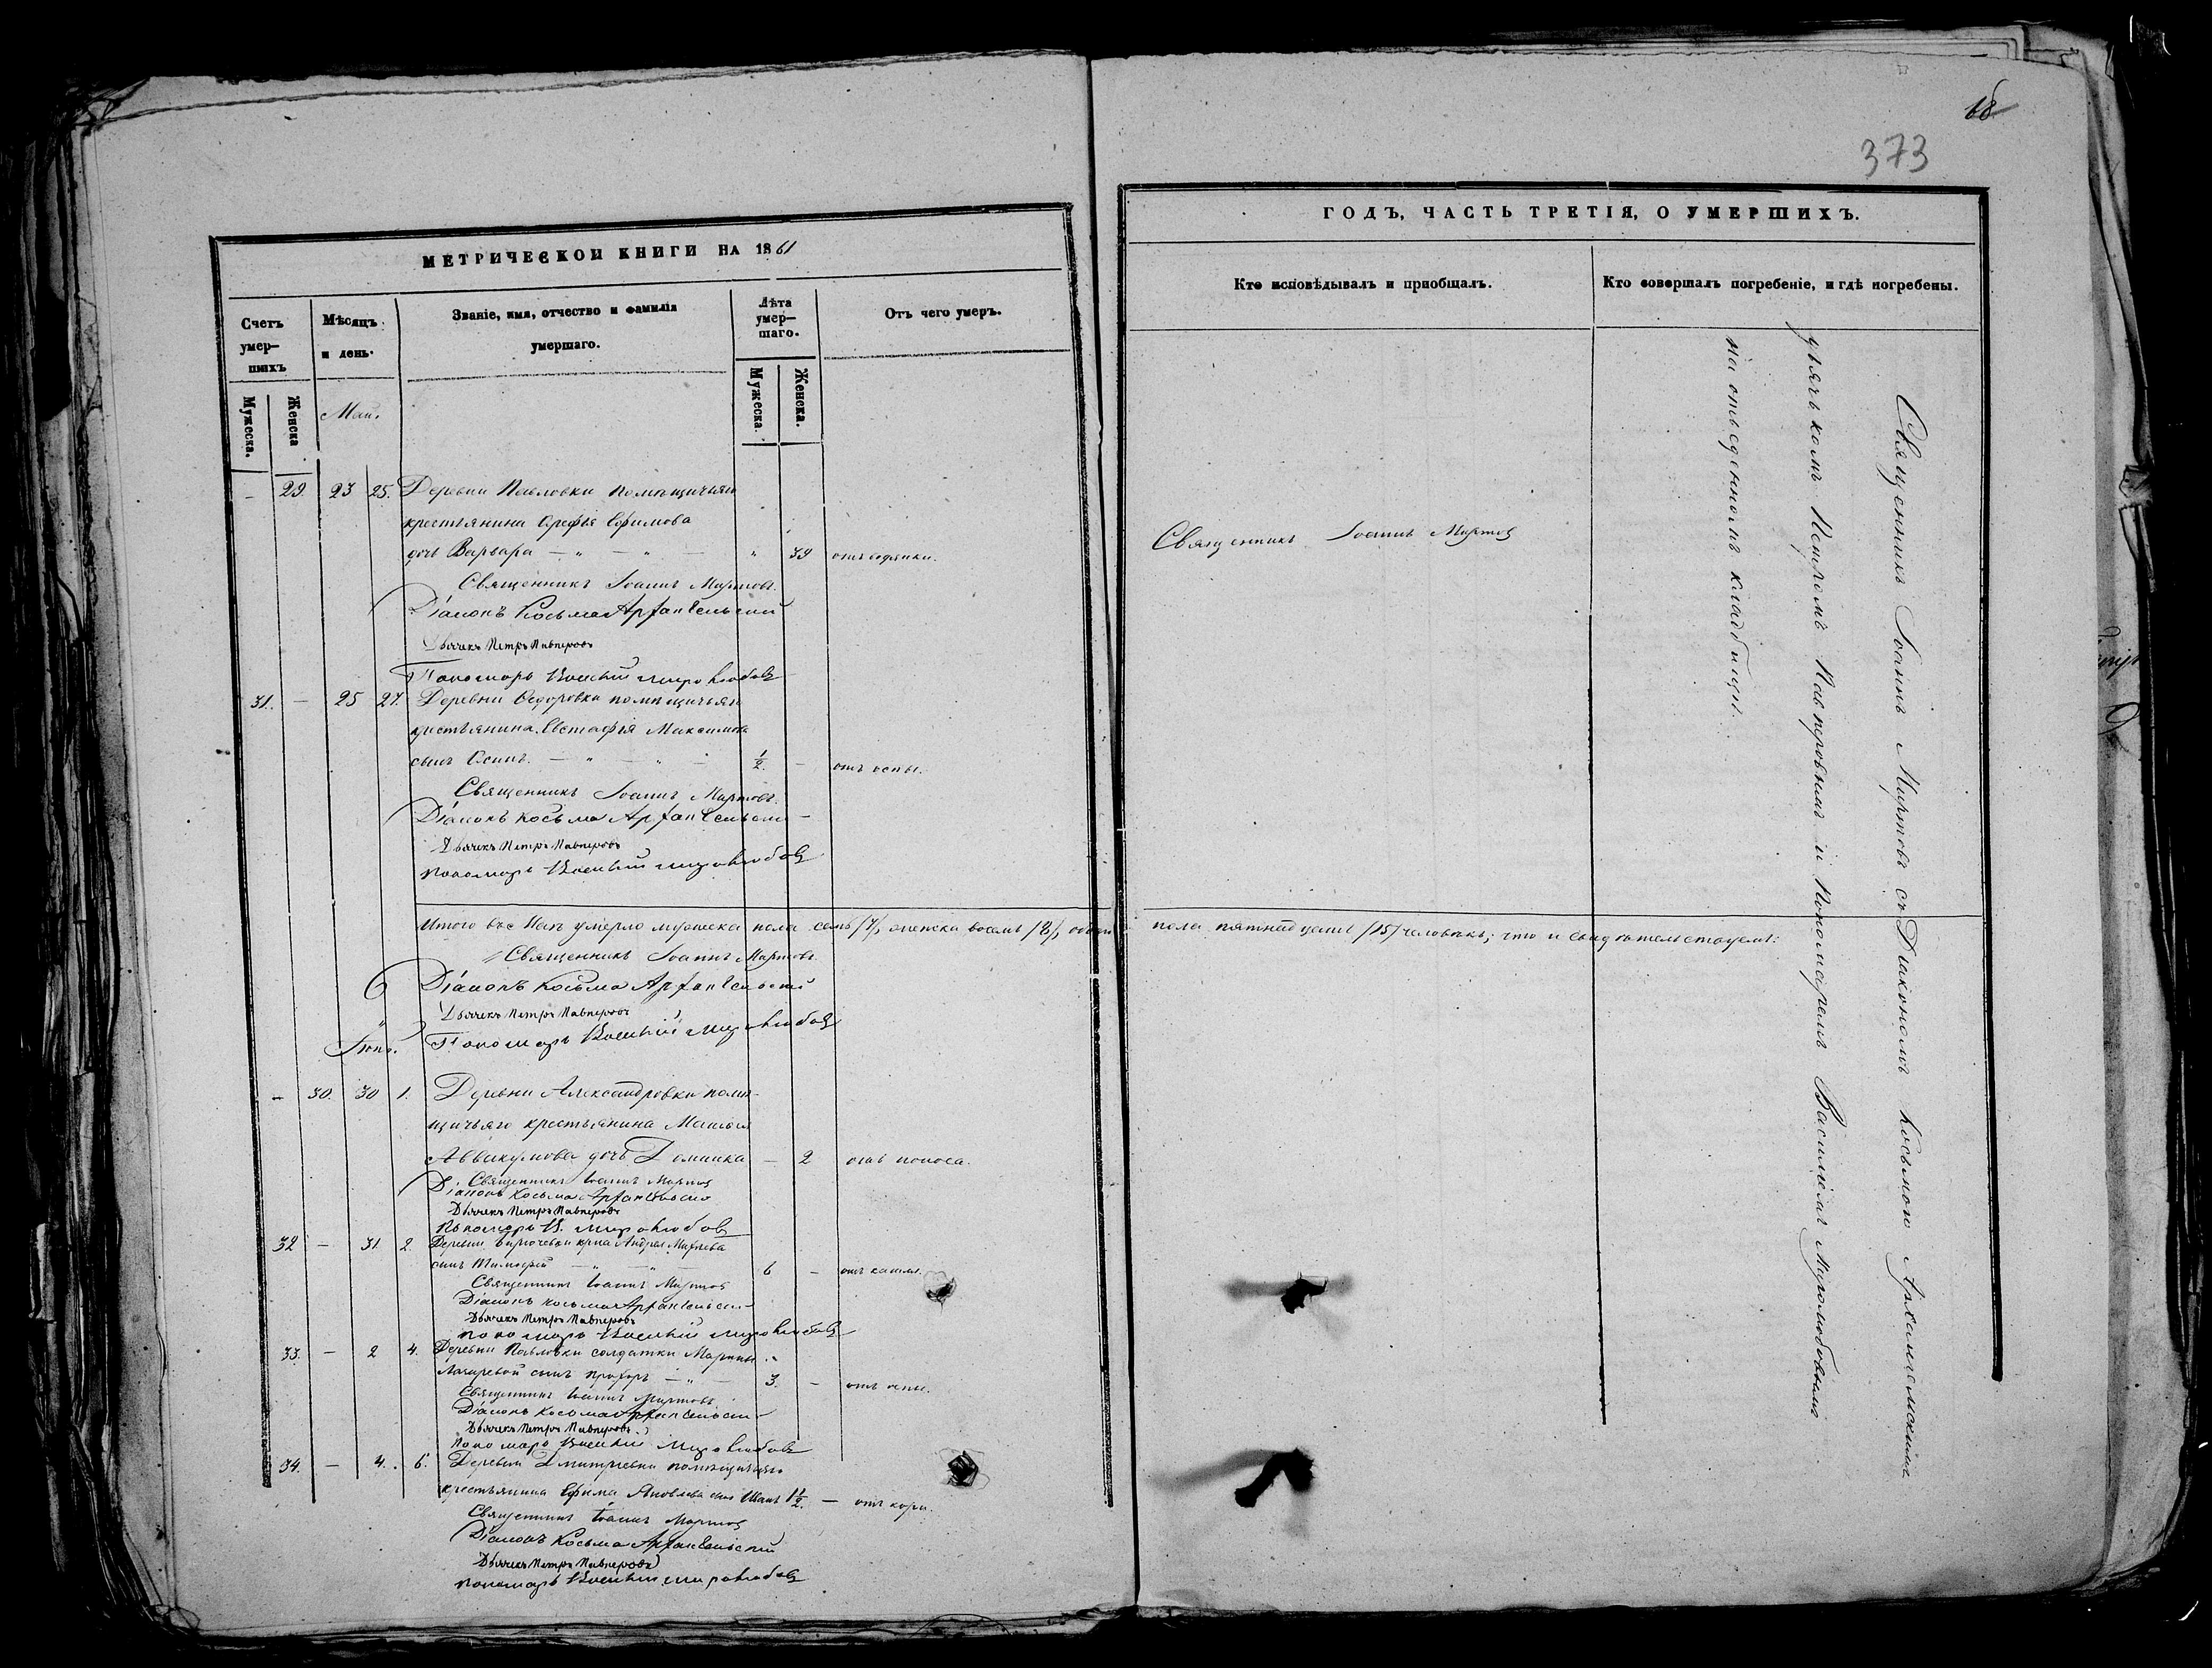 18
373
МЕТРИЧЕСКОЙ КНИГИ НА 1861
ГОДЪ, ЧАСТЬ ТРЕТІЯ, О УМЕРШИХЪ.
Счетъ умер-шихъ
Мѣсяцъ и день.
Званіе, имя, отчество и фамилія умершаго.
Лѣта умер-шаго.
Отъ чего умеръ.
Кто исповѣдывалъ и пріобщалъ.
Кто совершалъ погребеніе, и гдѣ погребены.
Мужеска.
Женска
Мужеска.
Женска.
Маій.
– 29. 23 25. Деревни Павловки помѣщичьяго
крестьянина Ефимова
дочь Варвара — " — " — " 39
Священникъ Іоаннъ Миртовъ
Священникъ Іоаннъ Миртовъ.
Діаконъ Косьма Архангельскій
Дьячекъ Петръ Павперовъ
Пономарь Василій Миролюбовъ
31. – 25 27. Деревни Ѳедоровки помѣщичьяго
крестьянина Евстафія Максимова
сынъ Осипъ. — " — " — ½. – отъ оспы.
Священникъ Іоаннъ Миртовъ.
Діаконъ Косьма Архангельскій
Дьячекъ Петръ Павперовъ
Пономарь Василій Миролюбовъ
Итого въ умерло мужеска пола семь /7/, женска восемь /8/, обоего пола пятнадцать /15/ человѣкъ; что и свидѣтельствуемъ:
Священникъ Іоаннъ Миртовъ.
Діаконъ Косьма Архангельскій
Дьячекъ Петръ Павперовъ
Пономарь Василій Миролюбовъ
Іюнь.
– 30. 30 1. Деревни Александровки помѣ-
щичьяго крестьянина Матвѣя
Аввакумова дочь Домника — 2 отъ поноса.
Священникъ Іоаннъ Миртовъ
Діаконъ Косьма Архангельскій
Дьячекъ Петръ Павперовъ
Пономарь В. Миролюбовъ
32 – 31. 2. Деревни Бирючевки крна Андрея Михѣева
сынъ Тимофей — " — " — 6 – отъ кашля.
Священникъ Іоаннъ Миртовъ
Діаконъ Косьма Архангельскій
Дьячекъ Петръ Павперовъ
Пономарь Василій Миролюбовъ
33. – 2 4. Деревни Павловки солдатки Марины
Лазаревой сынъ Прохоръ — " — 3. – отъ оспы.
Священникъ Іоаннъ Миртовъ.
Діаконъ Косьма Архангельскій
Дьячекъ Петръ Павперовъ
Пономарь Василій Миролюбовъ
34. – 4. 6. Деревни Дмитріевки помѣщичьяго
крестьянина Ефима Яковлева сынъ Иванъ 1½. — отъ кори.
Священникъ Іоаннъ Миртовъ
Діаконъ Косьма Архангельскій
Дьячекъ Петръ Павперовъ
Пономарь Василій Миролюбовъ
Священникъ Іоаннъ Миртовъ съ Діакономъ Косьмою Архангельскимъ
дьячкомъ Петромъ Павперовымъ и Пономаремъ Василіемъ Миролюбовымъ
на отведенномъ кладбищѣ.